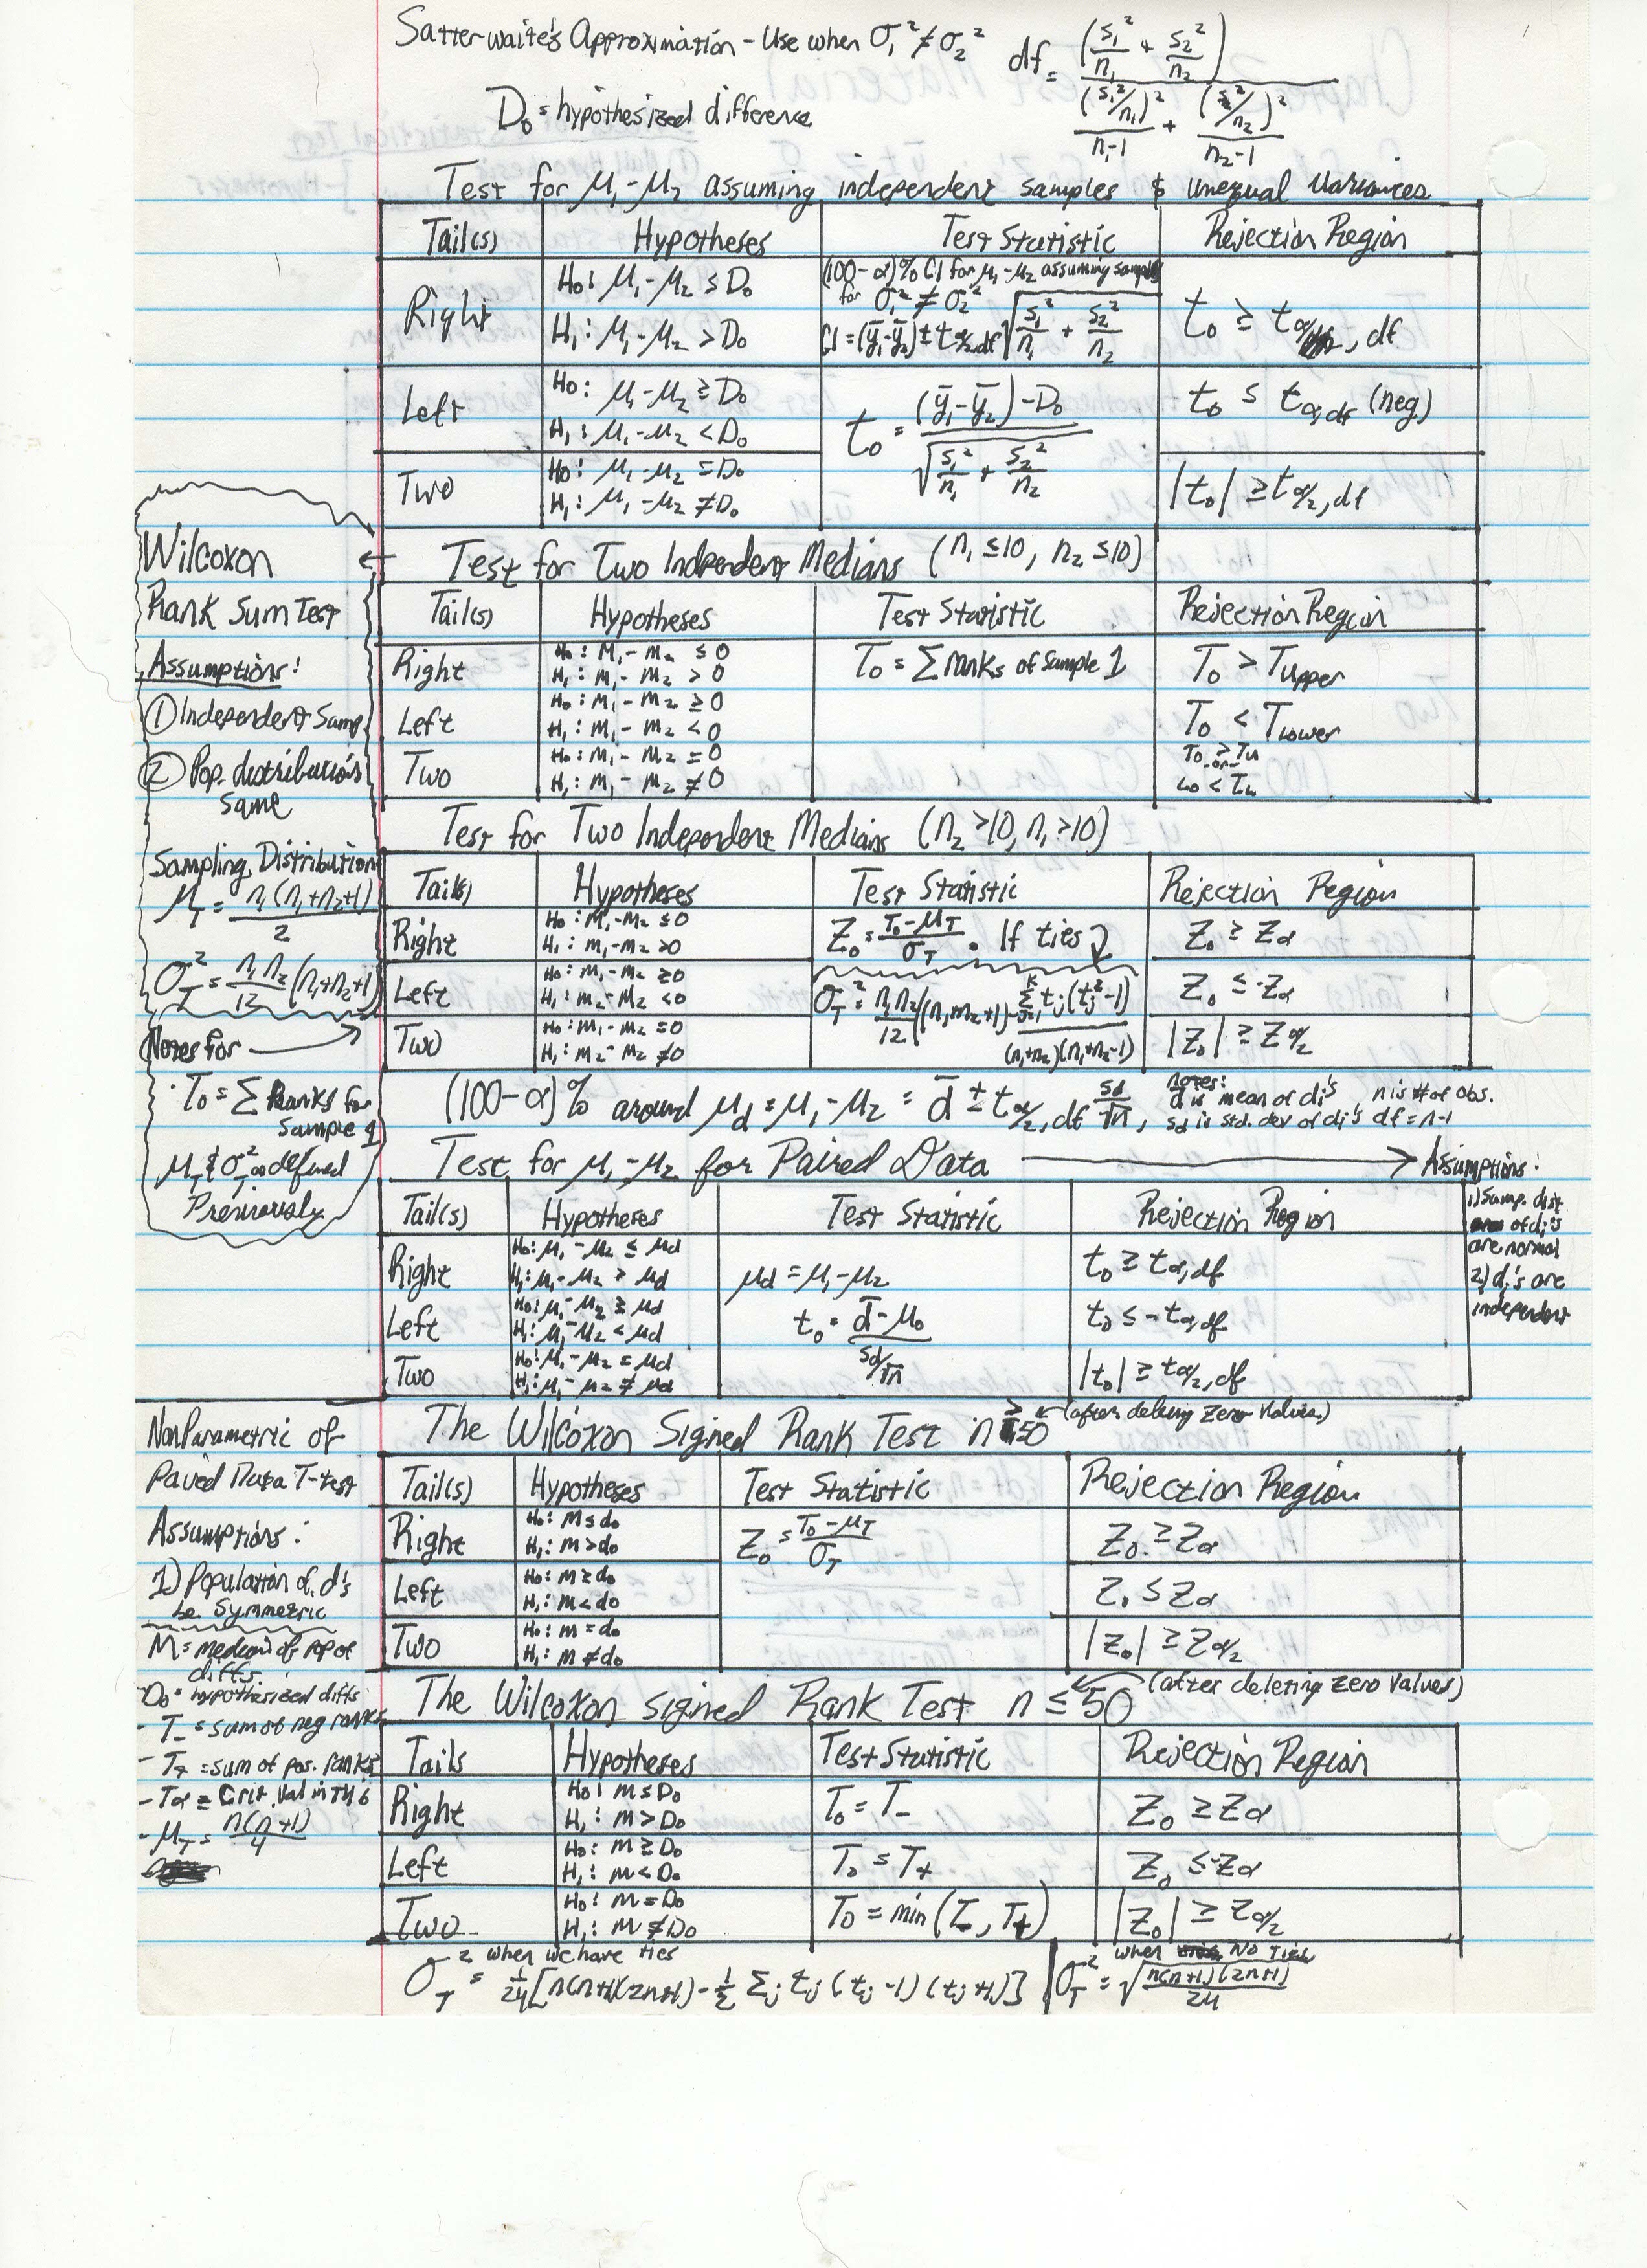 Satterwaite's Approximation - Use when σ₁² ≠ σ₂² df = (s₁²/n₁ + s₂²/n₂) / ((s₁²/n₁)²/(n₁-1) + (s₂²/n₂)²/(n₂-1))
D₀ = hypothesized difference
Test for μ₁-μ₂ assuming independent samples & unequal variances
Tail(s) Hypotheses Test Statistic Rejection Region
Right H₀: μ₁-μ₂ ≤ D₀ (100-α)% CI for μ₁-μ₂ assuming samples
for σ₁² ≠ σ₂²
H₁: μ₁-μ₂ > D₀ CI = (ȳ₁-ȳ₂) ± t α/2, df √(s₁²/n₁ + s₂²/n₂) t₀ ≥ tα, df
Left H₀: μ₁-μ₂ ≥ D₀ t₀ ≤ tα,df (neg)
H₁: μ₁-μ₂ < D₀ t₀ = ((ȳ₁-ȳ₂)-D₀) / √(s₁²/n₁ + s₂²/n₂)
Two H₀: μ₁-μ₂ = D₀ |t₀| ≥ tα/2, df
H₁: μ₁-μ₂ ≠ D₀
Wilcoxon
Rank Sum Test
Assumptions:
① Independent Samp.
② Pop. distributions
same
Sampling Distribution
μ_T = n₁(n₁+n₂+1)/2
σ_T² = n₁n₂/12 (n₁+n₂+1)
Notes for →
· T₀ = Σ Ranks for
Sample 1
μ_T & σ_T² as defined
Previously
← Test for Two Independent Medians (n₁ ≤ 10, n₂ ≤ 10)
Tail(s) Hypotheses Test Statistic Rejection Region
Right H₀: M₁-M₂ ≤ 0 T₀ = Σ ranks of Sample 1 T₀ > T_Upper
H₁: M₁-M₂ > 0
Left H₀: M₁-M₂ ≥ 0 T₀ < T_Lower
H₁: M₁-M₂ < 0
Two H₀: M₁-M₂ = 0 T₀ ≥ Tu
-or-
H₁: M₁-M₂ ≠ 0
Test for Two Independent Medians (n₂ >10, n₁ >10)
Tail(s) Hypotheses Test Statistic Rejection Region
Right H₀: M₁-M₂ ≤ 0 Z₀ = (T₀-μ_T)/σ_T . If ties Z₀ ≥ Zα
H₁: M₁-M₂ > 0
Left H₀: M₁-M₂ ≥ 0 Z₀ ≤ -Zα
H₁: M₂-M₂ < 0 σ_T² = n₁n₂/12 ((n₁+n₂+1) - Σ_{j=1}^{k} t_j(t_j²-1) / (n₁+n₂)(n₁+n₂-1))
Two H₀: M₁-M₂ = 0 |Z₀| ≥ Zα/2
H₁: M₂-M₂ ≠ 0
(100-α)% around μ_d = μ₁-μ₂ = d̄ ± tα/2, df sd/√n, notes: d̄ is mean of di's, n is # of obs.
sd is std. dev of di's df = n-1
Test for μ₁-μ₂ for Paired Data → Assumptions:
Tail(s) Hypotheses Test Statistic Rejection Region
Right H₀: μ₁-μ₂ ≤ μd t₀ ≥ tα,df
H₁: μ₁-μ₂ > μd μd = μ₁-μ₂
Left H₀: μ₁-μ₂ ≥ μd t₀ ≤ -tα,df
H₁: μ₁-μ₂ < μd t₀ = (d̄-μ₀)/(sd/√n)
Two H₀: μ₁-μ₂ = μd |t₀| ≥ tα/2, df
H₁: μ₁-μ₂ ≠ μd
1) Samp. dist
of di's
are normal
2) di's are
independent
NonParametric of
Paired Data T-test
Assumptions:
1) Population of d's
be Symmetric
M = median of pop of
diffs.
D₀ = hypothesized diffs
- T₋ = sum of neg ranks
- T₊ = sum of pos. ranks
- Tα = Crit. Val in Tbl 6
- μ_T = n(n+1)/4
The Wilcoxon Signed Rank Test n ≥ 50 (after deleting zero values)
Tail(s) Hypotheses Test Statistic Rejection Region
Right H₀: M ≤ d₀ Z₀ = (T₀-μ_T)/σ_T Z₀ ≥ Zα
H₁: M > d₀
Left H₀: M ≥ d₀ Z₀ ≤ Zα
H₁: M < d₀
Two H₀: M = d₀ |Z₀| ≥ Zα/2
H₁: M ≠ d₀
The Wilcoxon signed Rank Test n ≤ 50 (after deleting zero values)
Tails Hypotheses Test Statistic Rejection Region
Right H₀: M ≤ D₀ T₀ = T₋ Z₀ ≥ Zα
H₁: M > D₀
Left H₀: M ≥ D₀ T₀ = T₊ Z₀ ≤ -Zα
H₁: M < D₀
Two H₀: M = D₀ T₀ = min(T₋, T₊) |Z₀| ≥ Zα/2
H₁: M ≠ D₀
σ_T² when we have ties = 1/24[n(n+1)(2n+1) - ½ Σ_j t_j (t_j-1)(t_j+1)] σ_T² when No Ties = √(n(n+1)(2n+1)/24)